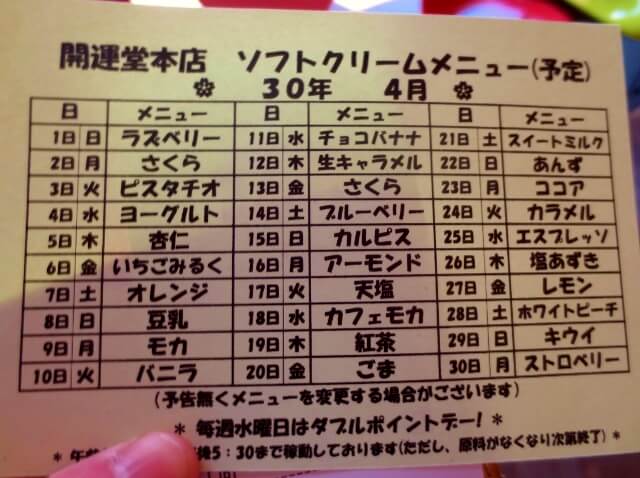 開運堂本店 ソフトクリームメニュー(予定)
30年 4月
日 メニュー 日 メニュー 日 メニュー
1日 日 ラズベリー 11日 水 チョコバナナ 21日 土 スイートミルク
2日 月 さくら 12日 木 生キャラメル 22日 日 あんず
3日 火 ピスタチオ 13日 金 さくら 23日 月 ココア
4日 水 ヨーグルト 14日 土 ブルーベリー 24日 火 カラメル
5日 木 杏仁 15日 日 カルピス 25日 水 エスプレッソ
6日 金 いちごみるく 16日 月 アーモンド 26日 木 塩あずき
7日 土 オレンジ 17日 火 天塩 27日 金 レモン
8日 日 豆乳 18日 水 カフェモカ 28日 土 ホワイトピーチ
9日 月 モカ 19日 木 紅茶 29日 日 キウイ
10日 火 バニラ 20日 金 ごま 30日 月 ストロベリー
(予告無くメニューを変更する場合がございます)
* 毎週水曜日はダブルポイントデー! *
* 午前 後5:30まで稼動しております(ただし、原料がなくなり次第終了) *